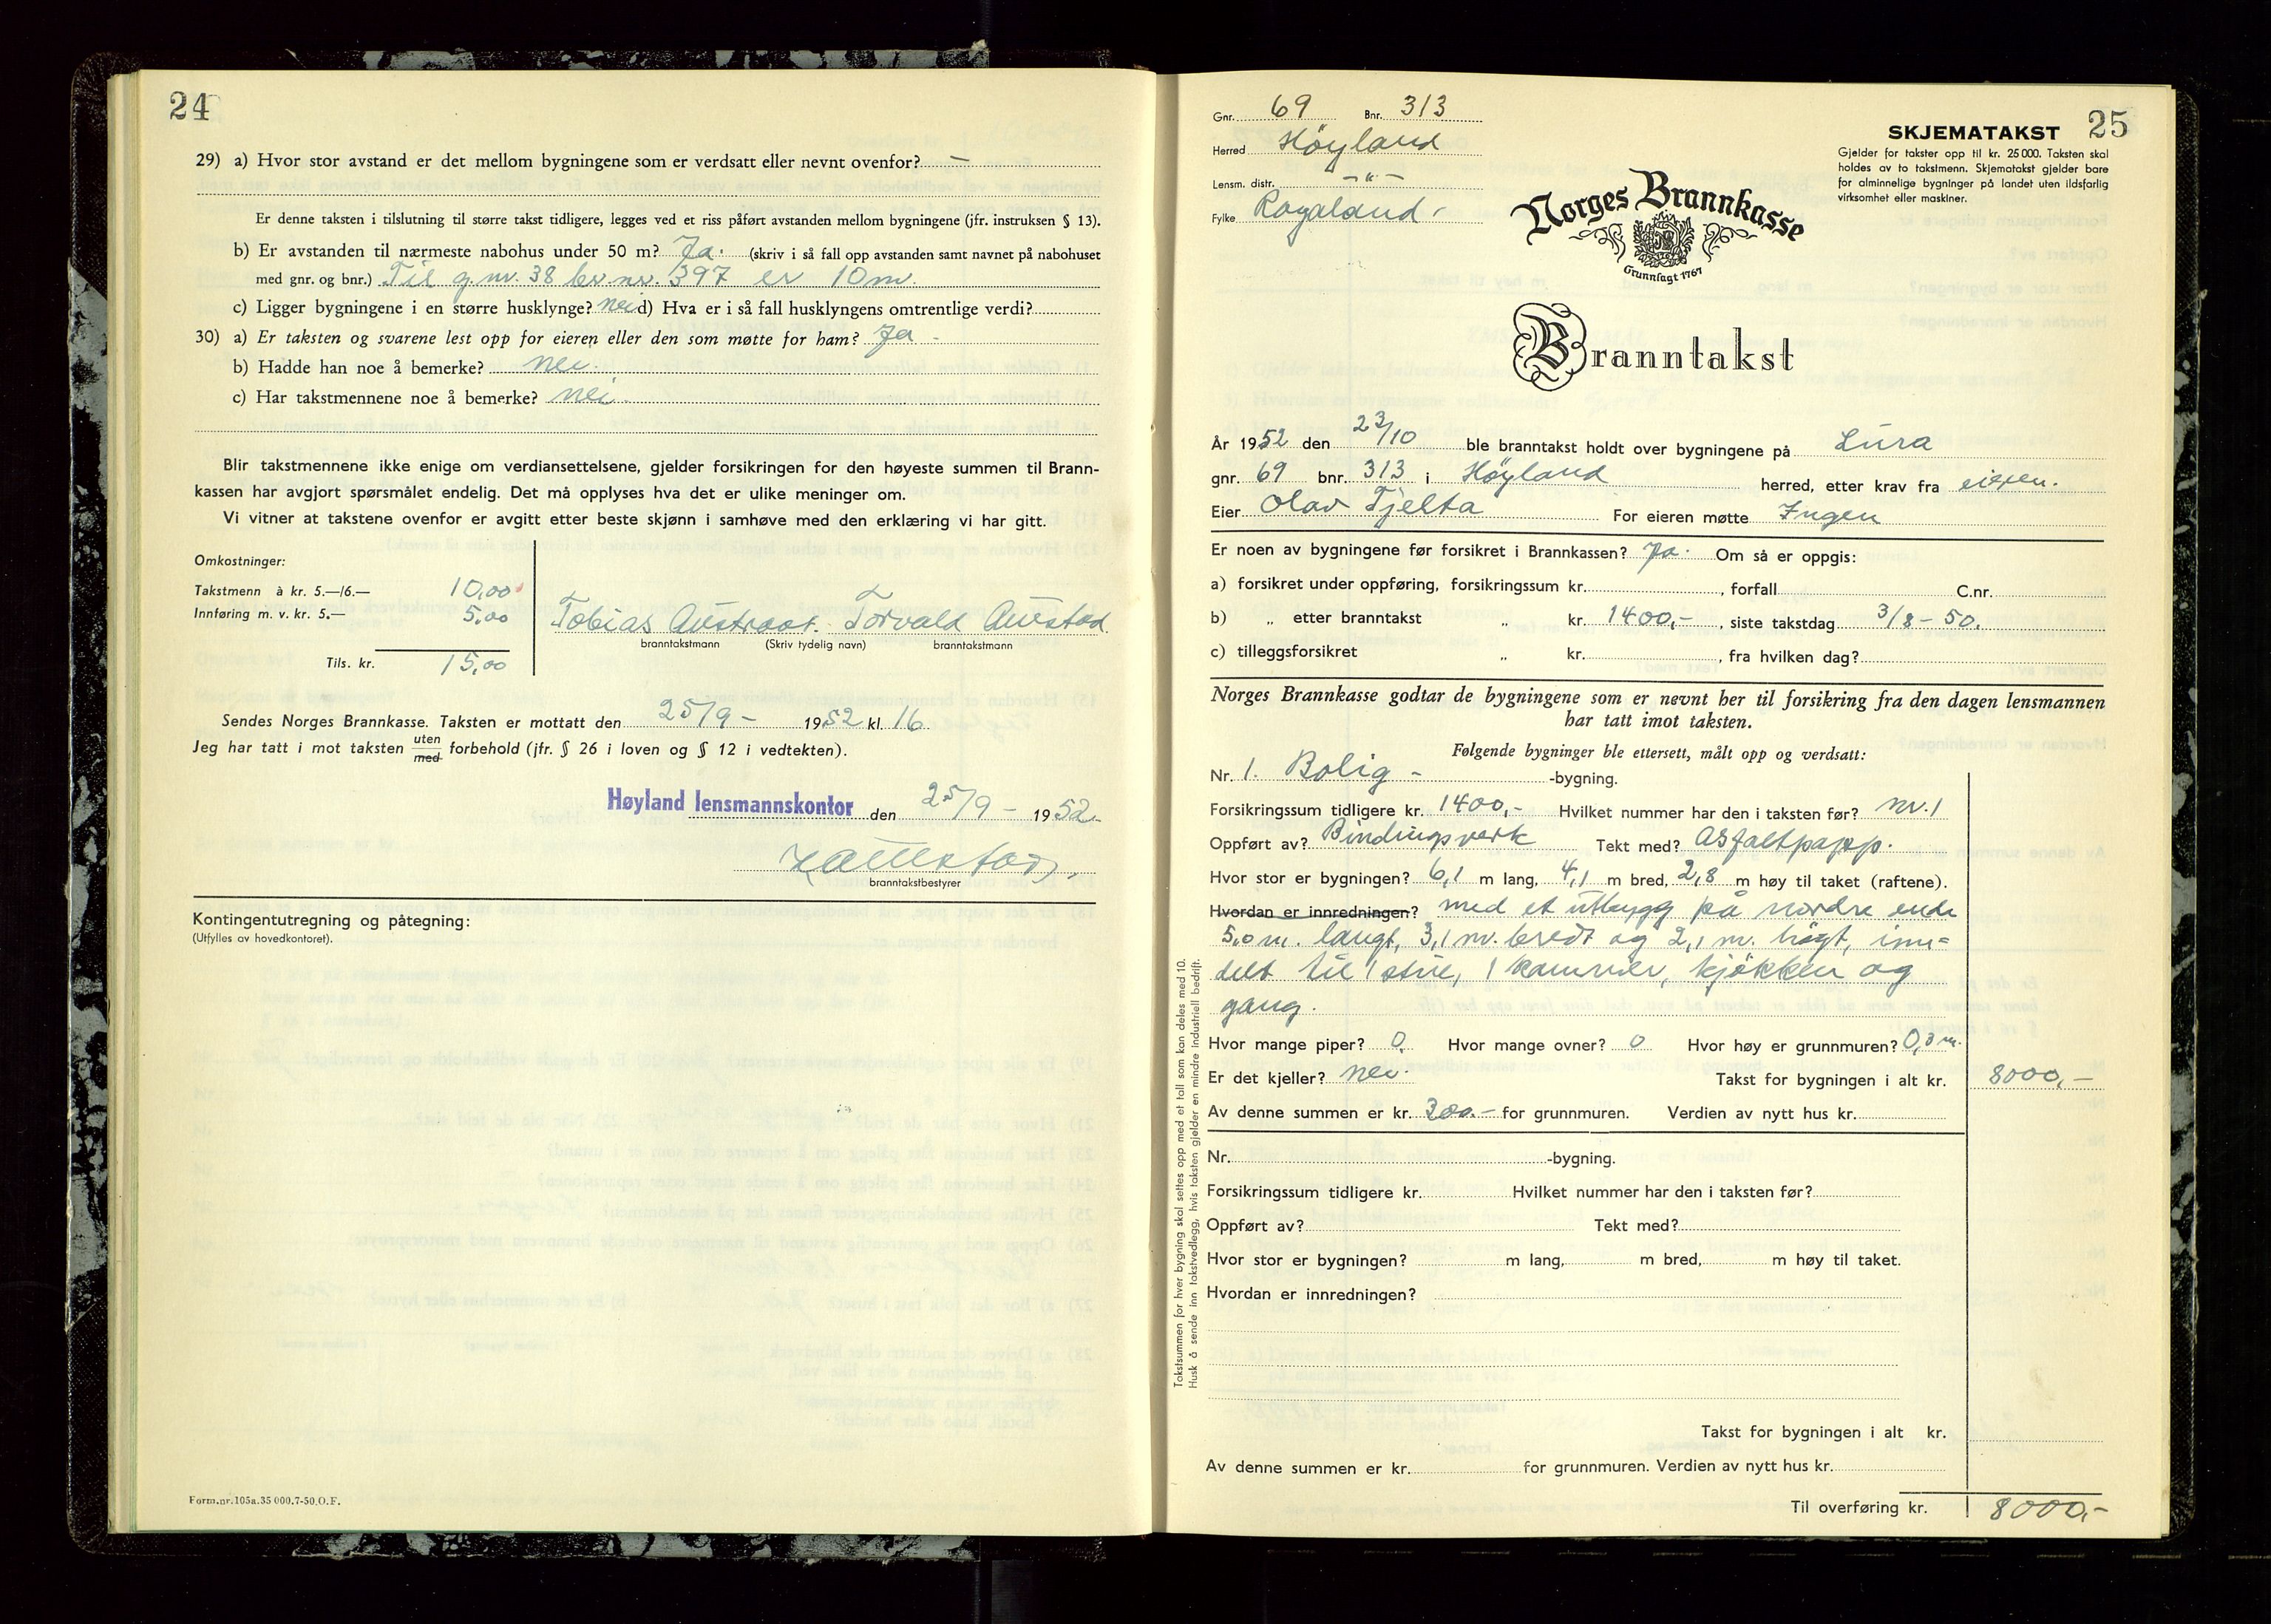 24
29) a) Hvor stor avstand er det mellom bygningene som er verdsatt eller nevnt ovenfor? —
Er denne taksten i tilslutning til større takst tidligere, legges ved et riss påført avstanden mellom bygningene (jfr. instruksen § 13).
b) Er avstanden til nærmeste nabohus under 50 m? Ja. (skriv i så fall opp avstanden samt navnet på nabohuset
med gnr. og bnr.) Til g.nr. 38 br.nr. 397 er 10 m.
c) Ligger bygningene i en større husklynge? nei d) Hva er i så fall husklyngens omtrentlige verdi?
30) a) Er taksten og svarene lest opp for eieren eller den som møtte for ham? Ja -
b) Hadde han noe å bemerke? nei.
c) Har takstmennene noe å bemerke? nei.
Blir takstmennene ikke enige om verdiansettelsene, gjelder forsikringen for den høyeste summen til Brann-
kassen har avgjort spørsmålet endelig. Det må opplyses hva det er ulike meninger om.
Vi vitner at takstene ovenfor er avgitt etter beste skjønn i samhøve med den erklæring vi har gitt.
Omkostninger:
Takstmenn à kr. 5.—/6.— 10,00
Innføring m. v. kr. 5.— 5,00
Tils. kr. 15,00
Tobias Austraat. Torvald Austad
branntakstmann (Skriv tydelig navn) branntakstmann
Sendes Norges Brannkasse. Taksten er mottatt den 25/9 - 1952 kl. 16
Jeg har tatt i mot taksten uten/med forbehold (jfr. § 26 i loven og § 12 i vedtekten).
Høyland lensmannskontor den 25/9 - 1952.
branntakstbestyrer
Kontingentutregning og påtegning:
(Utfylles av hovedkontoret).
Form.nr.105a.35 000.7-50.O.F.
25
Gnr. 69 Bnr. 313
Herred Höyland
Lensm. distr. - " -
Fylke Rogaland -
SKJEMATAKST
Gjelder for takster opp til kr. 25 000. Taksten skal
holdes av to takstmenn. Skjematakst gjelder bare
for alminnelige bygninger på landet uten ildsfarlig
virksomhet eller maskiner.
Norges Brannkasse
Grunnlagt 1767
Branntakst
År 1952 den 23/10 ble branntakst holdt over bygningene på Lura
gnr. 69 bnr. 313 i Höyland herred, etter krav fra eieren.
Eier Olav Tjelta For eieren møtte Ingen
Er noen av bygningene før forsikret i Brannkassen? Ja. Om så er oppgis:
a) forsikret under oppføring, forsikringssum kr. , forfall C.nr.
b) „ etter branntakst „ kr. 1400,- , siste takstdag 3/8 - 50.
c) tilleggsforsikret „ kr. , fra hvilken dag?
Norges Brannkasse godtar de bygningene som er nevnt her til forsikring fra den dagen lensmannen
har tatt imot taksten.
Følgende bygninger ble ettersett, målt opp og verdsatt:
Nr. 1. Bolig - -bygning.
Forsikringssum tidligere kr. 1400,- Hvilket nummer har den i taksten før? nr. 1
Oppført av? Bindingsverk Tekt med? Asfaltpapp.
Hvor stor er bygningen? 6,1 m lang, 4,1 m bred, 2,8 m høy til taket (raftene).
Hvordan er innredningen? med et utbygg på nordre ende
5,0 m. langt, 3,1 m. bredt og 2,1 m. högt, inn=
delt til 1 stue, 1 kammer, kjökken og
gang.
Hvor mange piper? 0. Hvor mange ovner? 0 Hvor høy er grunnmuren? 0,3 m.
Er det kjeller? nei. Takst for bygningen i alt kr. 8000,-
Av denne summen er kr. 300.- for grunnmuren. Verdien av nytt hus kr.
Nr. -bygning.
Forsikringssum tidligere kr. Hvilket nummer har den i taksten før?
Oppført av? Tekt med?
Hvor stor er bygningen? m lang, m bred, m høy til taket.
Hvordan er innredningen?
Takst for bygningen i alt kr.
Av denne summen er kr. for grunnmuren. Verdien av nytt hus kr.
Til overføring kr. 8000,-
Takstsummen for hver bygning skal settes opp med et tall som kan deles med 10.
Husk å sende inn takstvedlegg, hvis taksten gjelder en mindre industriell bedrift.